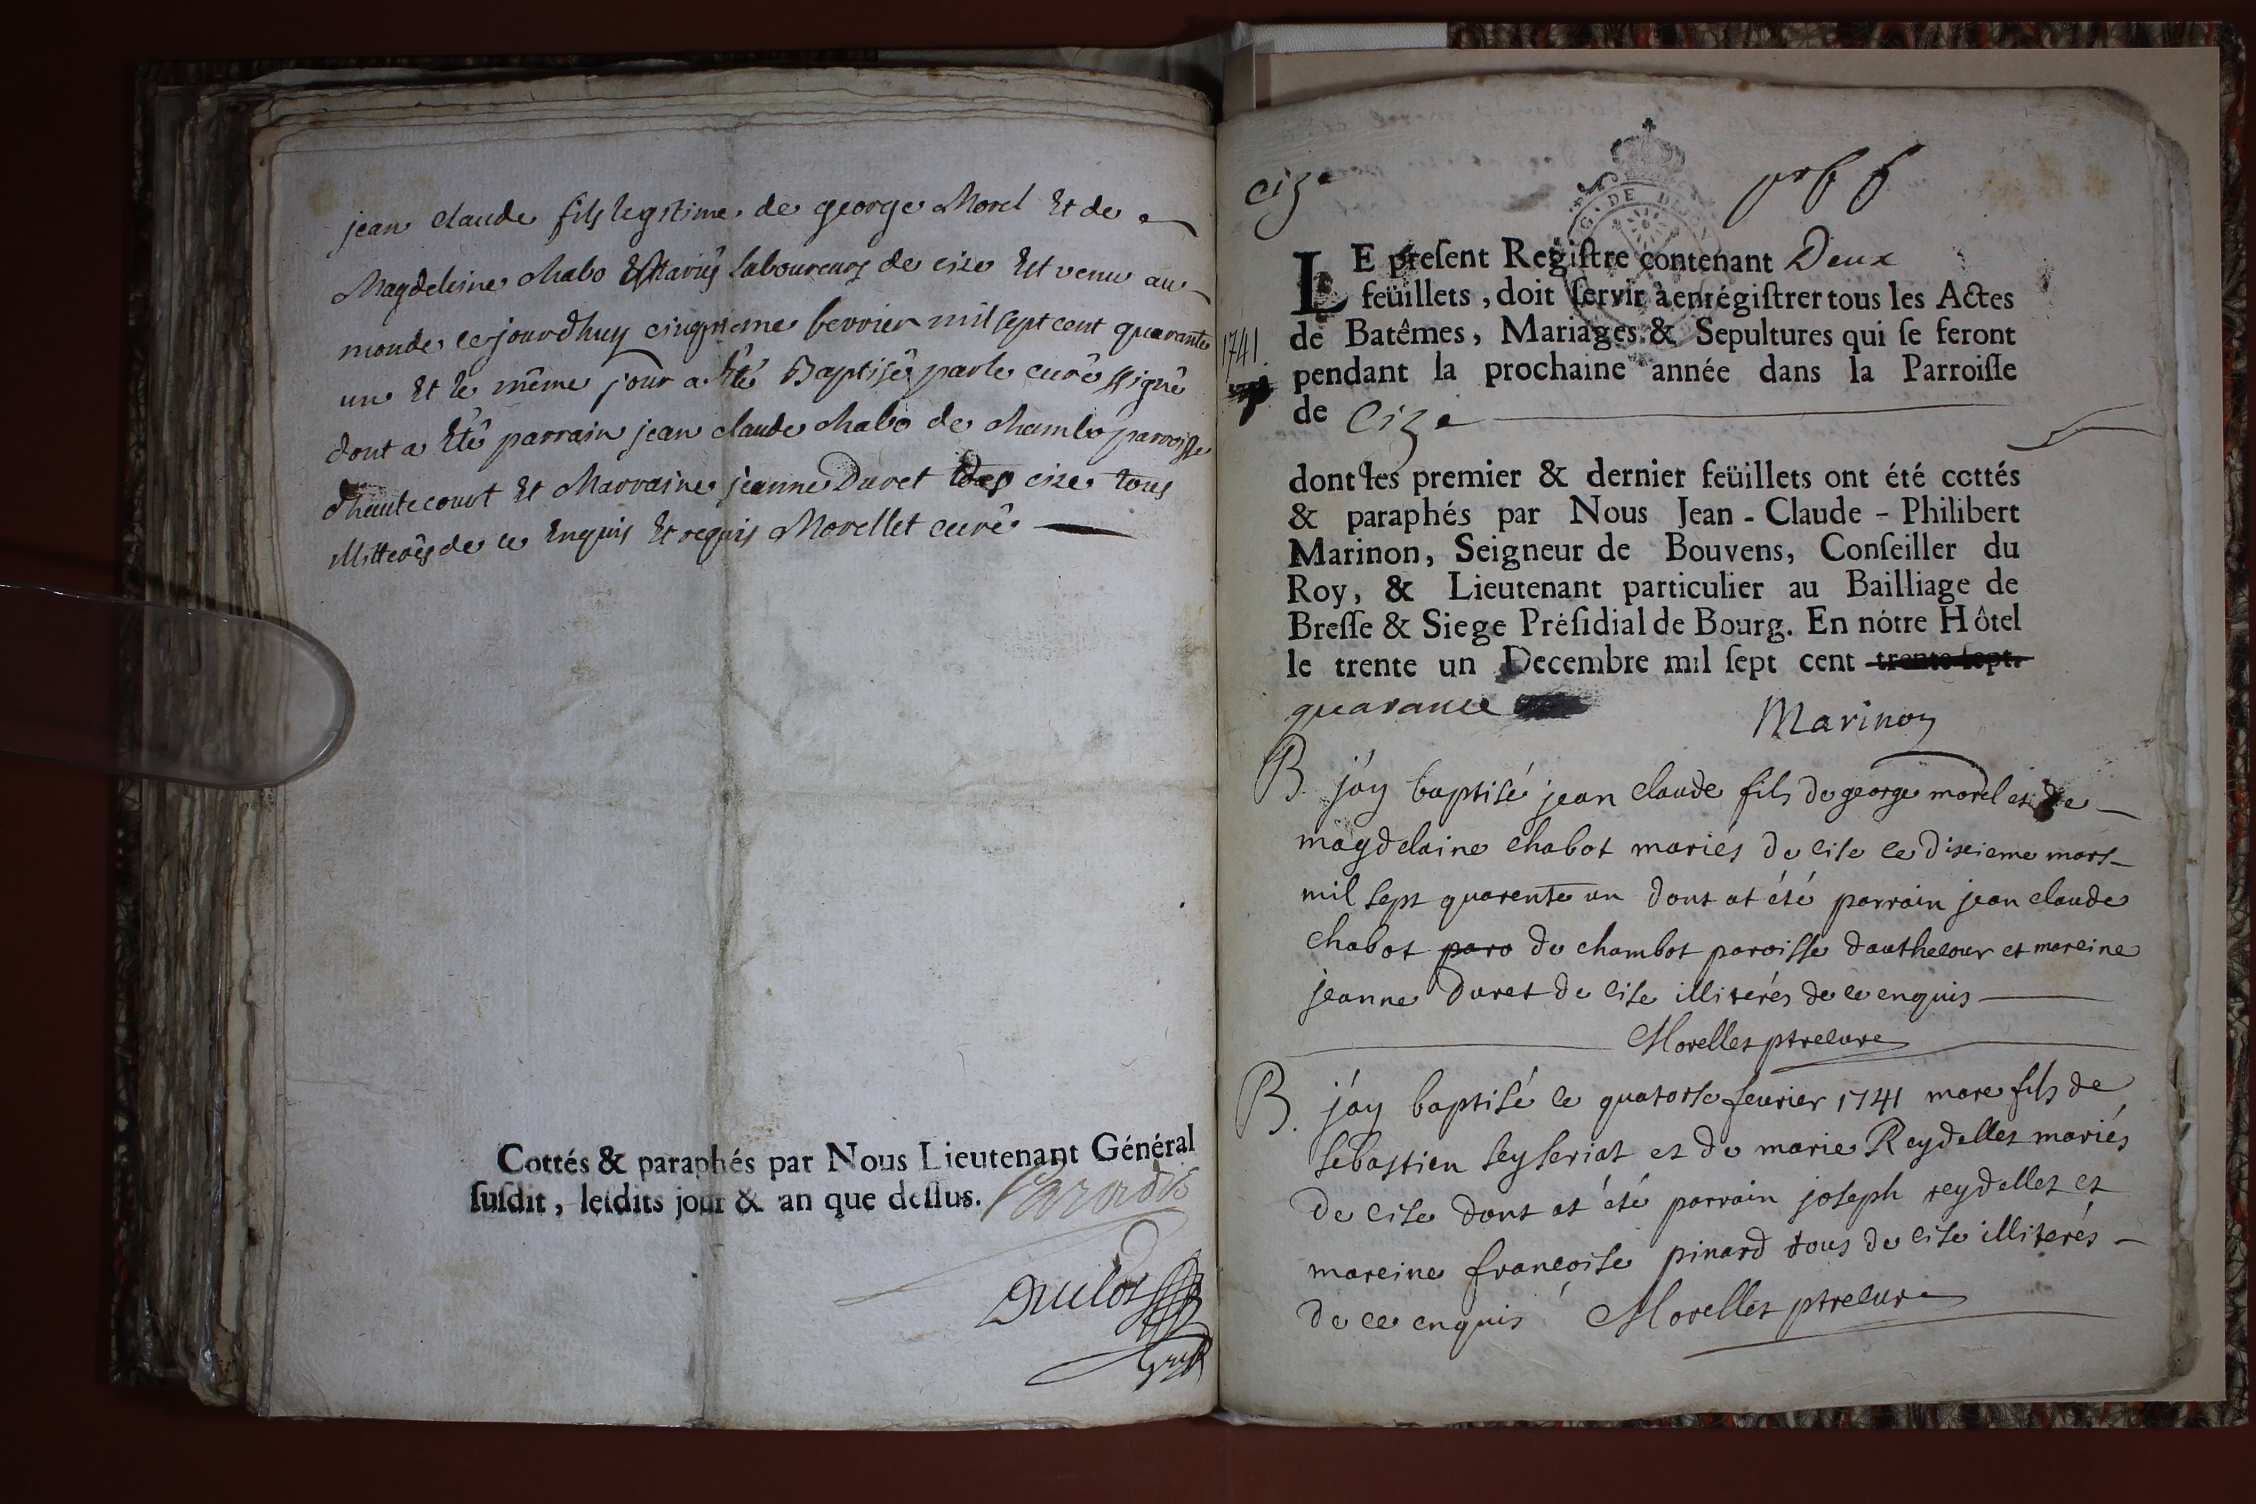 jean claude fils legitime de george Morel Et de
Magdeleine chabo Mariés laboureurs de cize Est venu au
monde cejourdhuy cinquieme fevvier mil sept cent quarante
un Et le même jour a Eté Baptisé par le curé ssigné
dont a Eté parrain jean claude chabo de chambo parroisse
dhautecourt Et Marraine jeanne Duret de cize tous
illitterés de ce Enquis Et requis Morellet curé
Cottés & paraphés par Nous Lieutenant Général
susdit, lesdits jour & an que dessus.
cize
G. DE DIJON
1741
LE present Registre contenant Deux
feüillets, doit servir à enrégistrer tous les Actes
de Batêmes, Mariages & Sepultures qui se feront
pendant la prochaine année dans la Parroisse
de Cize
dont les premier & dernier feüillets ont été cottés
& paraphés par Nous Jean-Claude-Philibert
Marinon, Seigneur de Bouvens, Conseiller du
Roy, & Lieutenant particulier au Bailliage de
Bresse & Siege Présidial de Bourg. En nôtre Hôtel
le trente un Decembre mil sept cent trente sept.
quarante
Marinon
B. j'ay baptisé jean claude fils de george morel et de
magdelaine chabot mariés de cise le dixieme mars
mil sept quarente un dont at été parrain jean claude
chabot paro de chambot paroisse dauthecour et mareine
jeanne Duret de cise illiterés de ce enquis
Morellet ptre curé
B. j'ay baptisé le quatorse feurier 1741 marc fils de
sebastien seyseriat et de marie Reydellet mariés
de cise dont at été parrain joseph reydellet et
mareine francoise pinard tous de cise illiterés
de ce enquis Morellet ptre curé